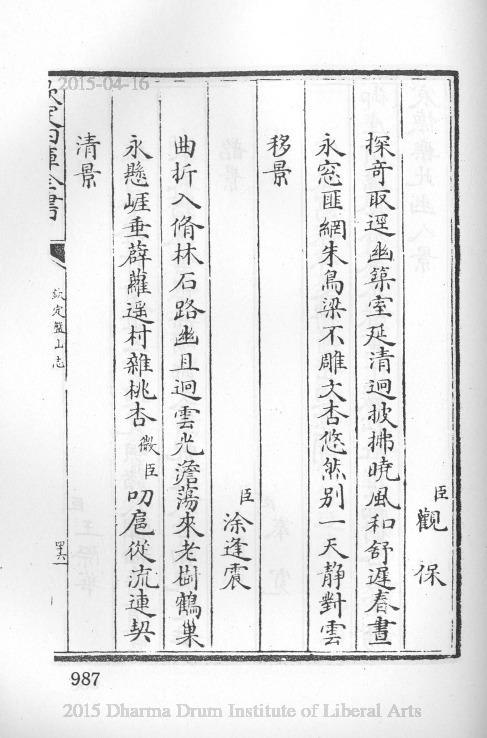 臣觀保
探奇取逕幽築室延清迥披拂曉風和舒遲春晝
永窓匪網朱鳥梁不雕文杏悠然别一天静對雲
移景
臣涂逢震
曲折入脩林石路幽且迥雲光澹蕩來老樹鶴巢
永懸崕垂薜蘿遥村雜桃杏微臣叨扈從流連契
清景
欽定四庫全書
欽定盤山志
2015-04-16
987
2015 Dharma Drum Institute of Liberal Arts